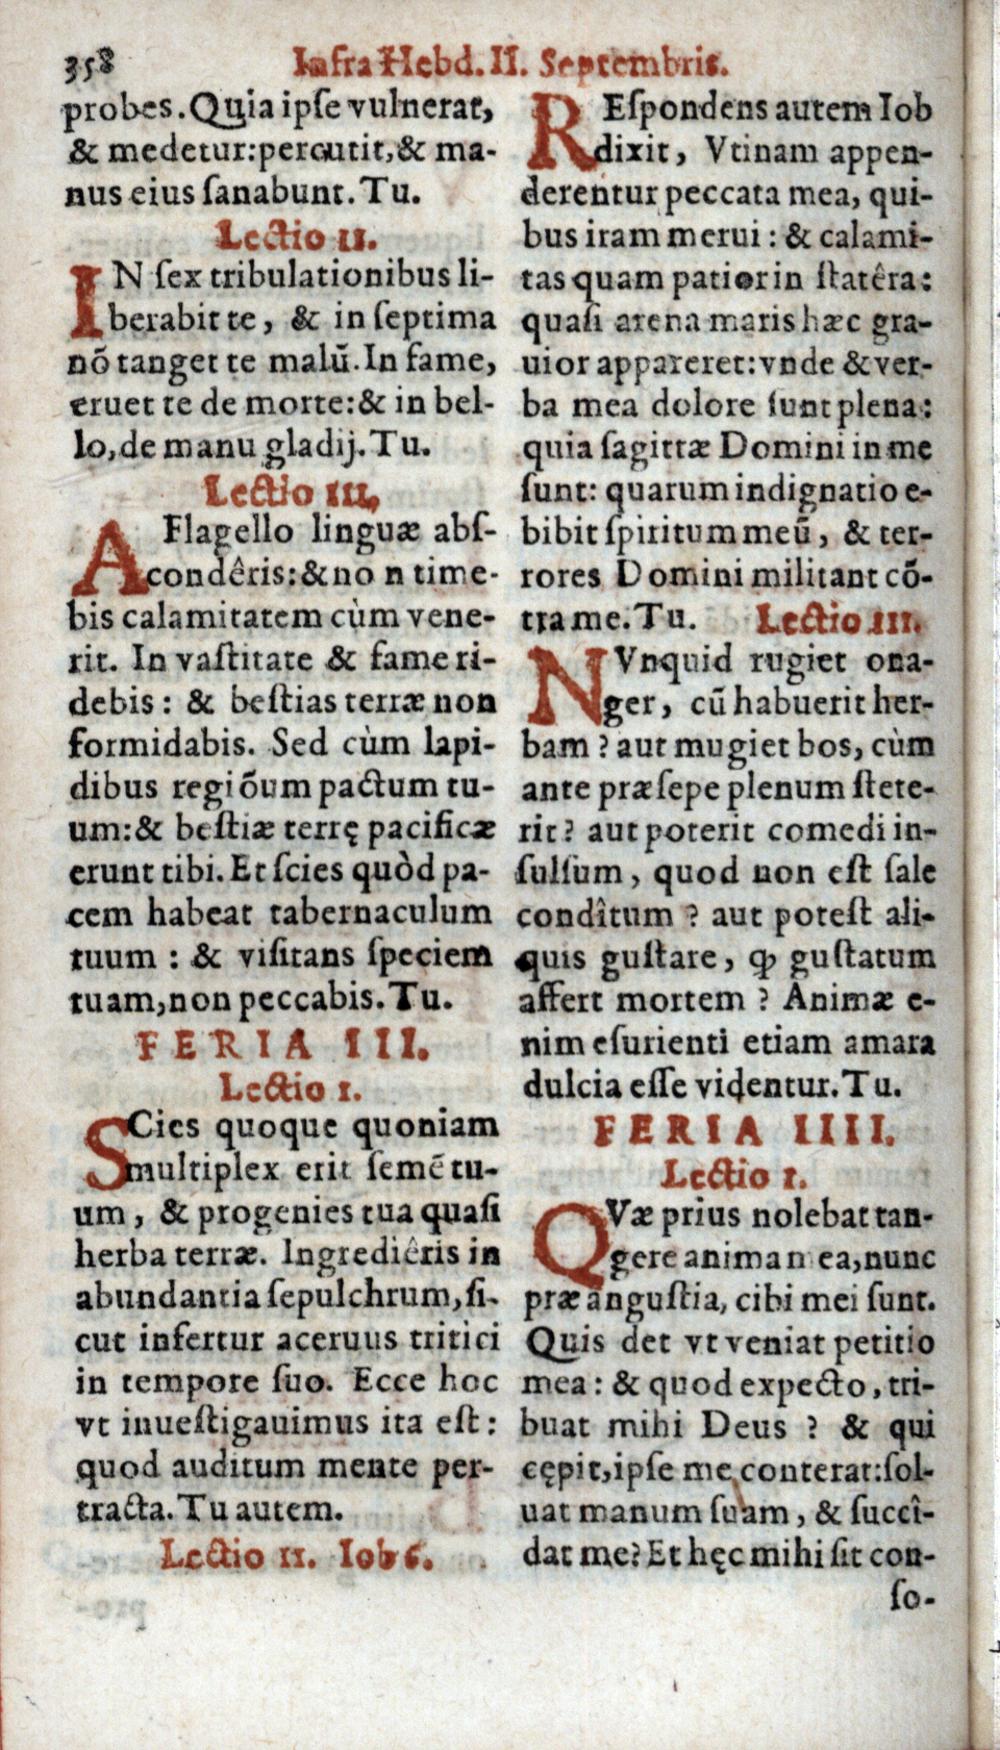 358
Infra Hebd. II. Septembris.
probes. Quia ipſe vulnerat,
& medetur: percutit, & ma-
nus eius ſanabunt. Tu.
Lectio II.
IN ſex tribulationibus li-
berabit te, & in ſeptima
nõ tanget te malũ. In fame,
eruet te de morte: & in bel-
lo, de manu gladij. Tu.
Lectio III,
A Flagello linguæ abſ-
condêris: & no n time-
bis calamitatem cùm vene-
rit. In vaſtitate & fame ri-
debis: & beſtias terræ non
formidabis. Sed cùm lapi-
dibus regiõum pactum tu-
um: & beſtiæ terrę pacificæ
erunt tibi. Et ſcies quòd pa-
cem habeat tabernaculum
tuum: & viſitans ſpeciem
tuam, non peccabis. Tu.
FERIA III.
Lectio I.
SCies quoque quoniam
multiplex erit ſemẽ tu-
um, & progenies tua quaſi
herba terræ. Ingrediêris in
abundantia ſepulchrum, ſi-
cut infertur aceruus tritici
in tempore ſuo. Ecce hoc
vt inueſtigauimus ita eſt:
quod auditum mente per-
tracta. Tu autem.
Lectio II. Iob 6.
REſpondens autem Iob
dixit, Vtinam appen-
derentur peccata mea, qui-
bus iram merui: & calami-
tas quam patior in ſtatêra:
quaſi arena maris hæc gra-
uior appareret: vnde & ver-
ba mea dolore ſunt plena:
quia ſagittæ Domini in me
ſunt: quarum indignatio e-
bibit ſpiritum meũ, & ter-
rores Domini militant cõ-
tra me. Tu. Lectio III.
NVnquid rugiet ona-
ger, cũ habuerit her-
bam? aut mugiet bos, cùm
ante præſepe plenum ſtete-
rit? aut poterit comedi in-
ſulſum, quod non eſt ſale
condîtum? aut poteſt ali-
quis guſtare, ꝙ guſtatum
affert mortem? Animæ e-
nim eſurienti etiam amara
dulcia eſſe videntur. Tu.
FERIA IIII.
Lectio I.
QVæ prius nolebat tan-
gere anima mea, nunc
præ anguſtia, cibi mei ſunt.
Quis det vt veniat petitio
mea: & quod expecto, tri-
buat mihi Deus? & qui
cępit, ipſe me conterat: ſol-
uat manum ſuam, & ſuccî-
dat me? Et hęc mihi ſit con-
ſo-